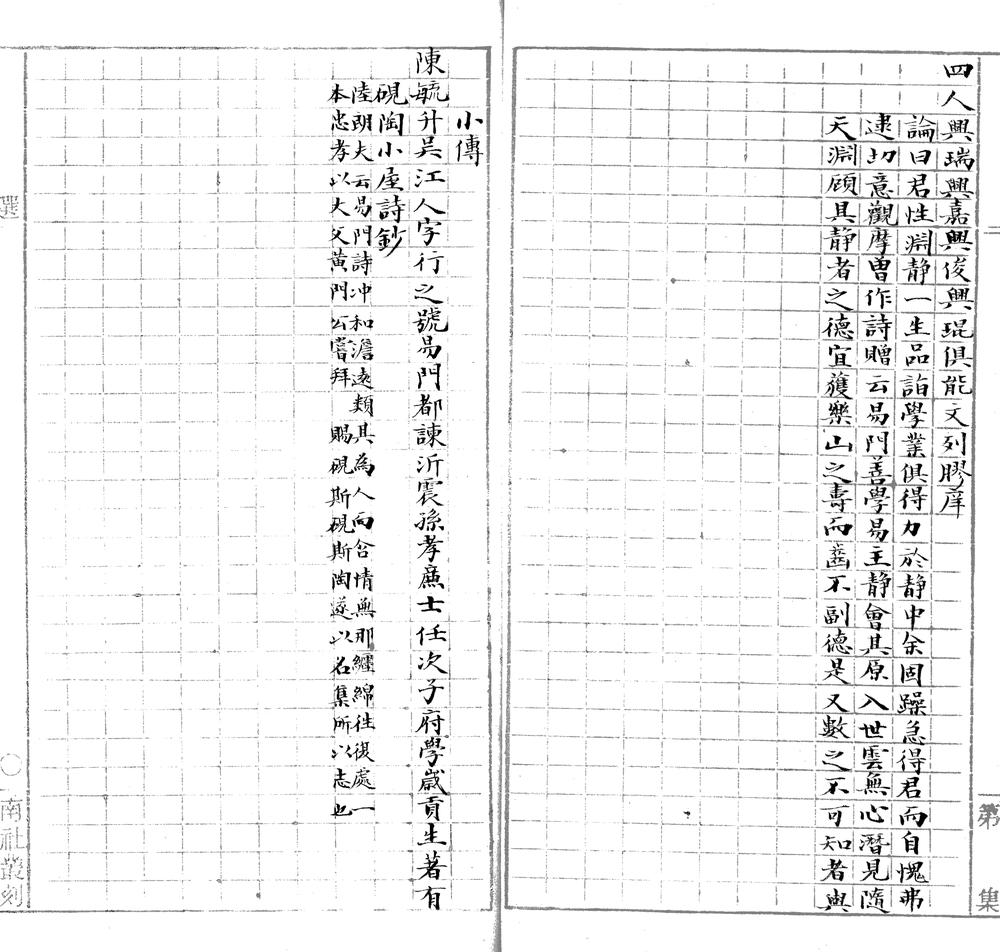 四人興瑞興嘉興俊興琨俱能文列膠庠
論曰君性淵静一生品詣學業俱得力於静中余固躁急得君而自愧弗
逮切意觀摩曽作詩贈云易門善學易主静會其原入世雲無心潛見隨
天淵顧其静者之德宜獲樂山之壽而齒不副德是又數之不可知者與
二
第
集
小傳
陳毓升吳江人字行之號易門都諫沂震孫孝廉士任次子府學歲貢生著有
硯陶小屋詩鈔
陸朗夫云易門詩冲和澹遠類其為人而含情無那纏綿徃復處一
本忠孝以大父黄門公嘗拜賜硯斯硯斯陶遂以名集所以志也
選
〇
南社叢刻